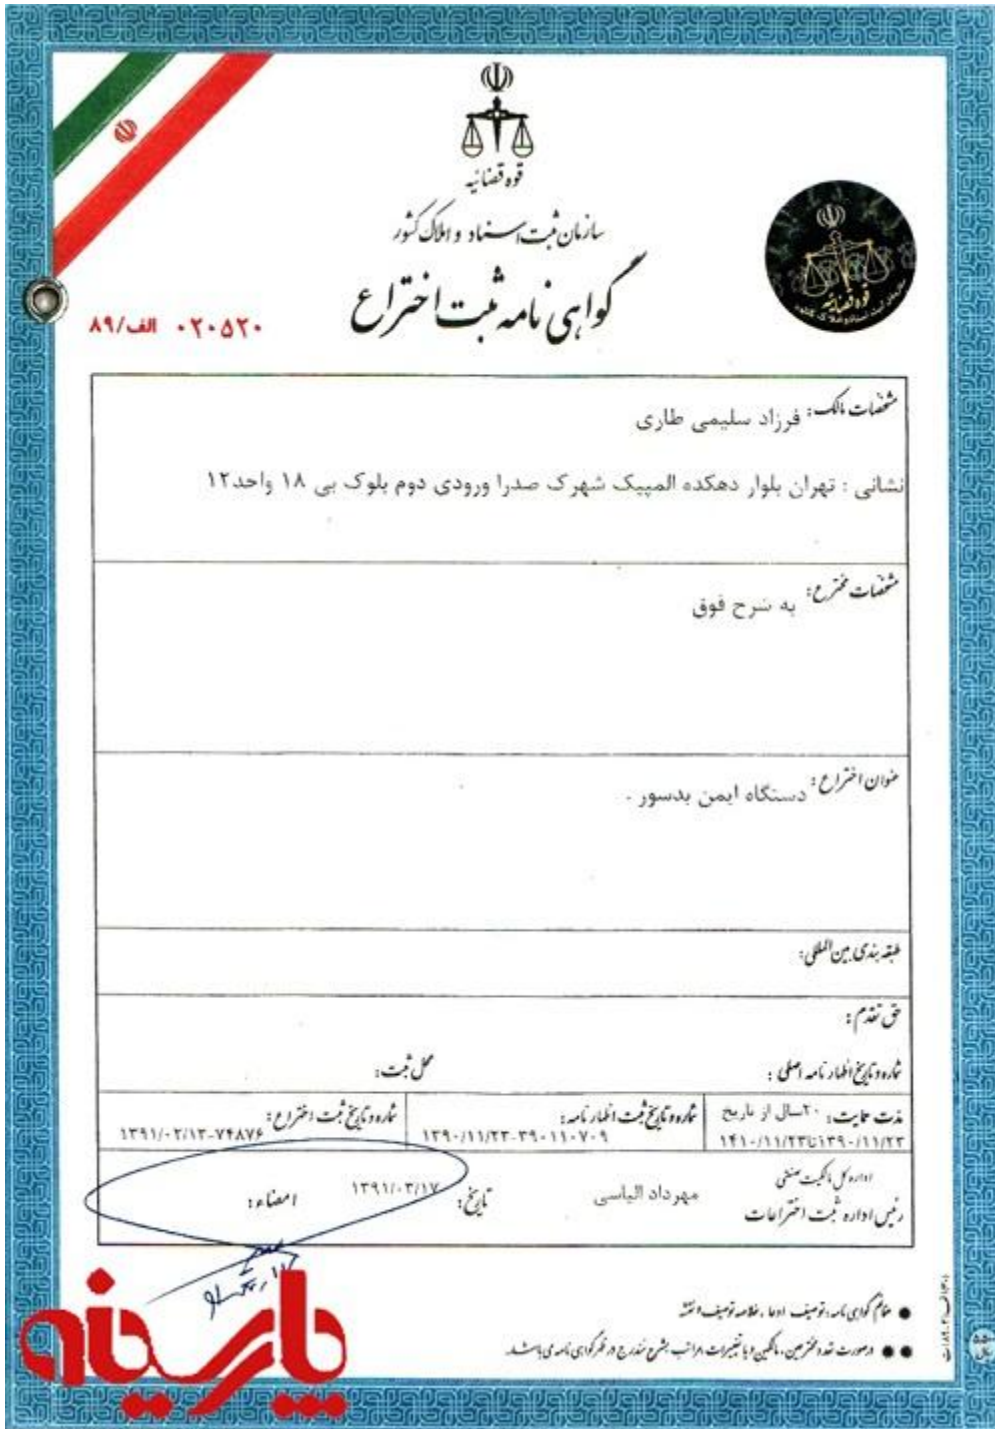 قوه قضائیه
سازمان ثبت اسناد و املاک کشور
گواهی نامه ثبت اختراع
۰۲۰۵۲۰ الف/۸۹
قوه قضائیه
مشخصات مالک: فرزاد سلیمی طاری
نشانی : تهران بلوار دهکده المپیک شهرک صدرا ورودی دوم بلوک بی ۱۸ واحد۱۲
مشخصات مخترع: به شرح فوق
عنوان اختراع: دستگاه ایمن بدسور .
طبقه بندی بین المللی:
حق تقدم :
شماره و تاریخ اظهار نامه اصلی : محل ثبت:
مدت حمایت: ۲۰سال از تاریخ
۱۳۹۰/۱۱/۲۳تا۱۴۱۰/۱۱/۲۳
شماره و تاریخ ثبت اظهار نامه:
۱۳۹۰/۱۱/۲۳-۳۹۰۱۱۰۷۰۹
شماره و تاریخ ثبت اختراع:
۱۳۹۱/۰۲/۱۳-۷۴۸۷۶
اداره کل مالکیت صنعتی
رئیس اداره ثبت اختراعات
مهرداد الیاسی
تاریخ: ۱۳۹۱/۰۳/۱۷
امضاء:
ضمائم گواهی نامه، توصیف، ادعا، خلاصه توصیف و نقشه
درصورت تعدد مخترعین، مالکین و یا تغییرات مراتب بشرح مندرج در ظهر گواهی نامه می باشد.
پارسینه